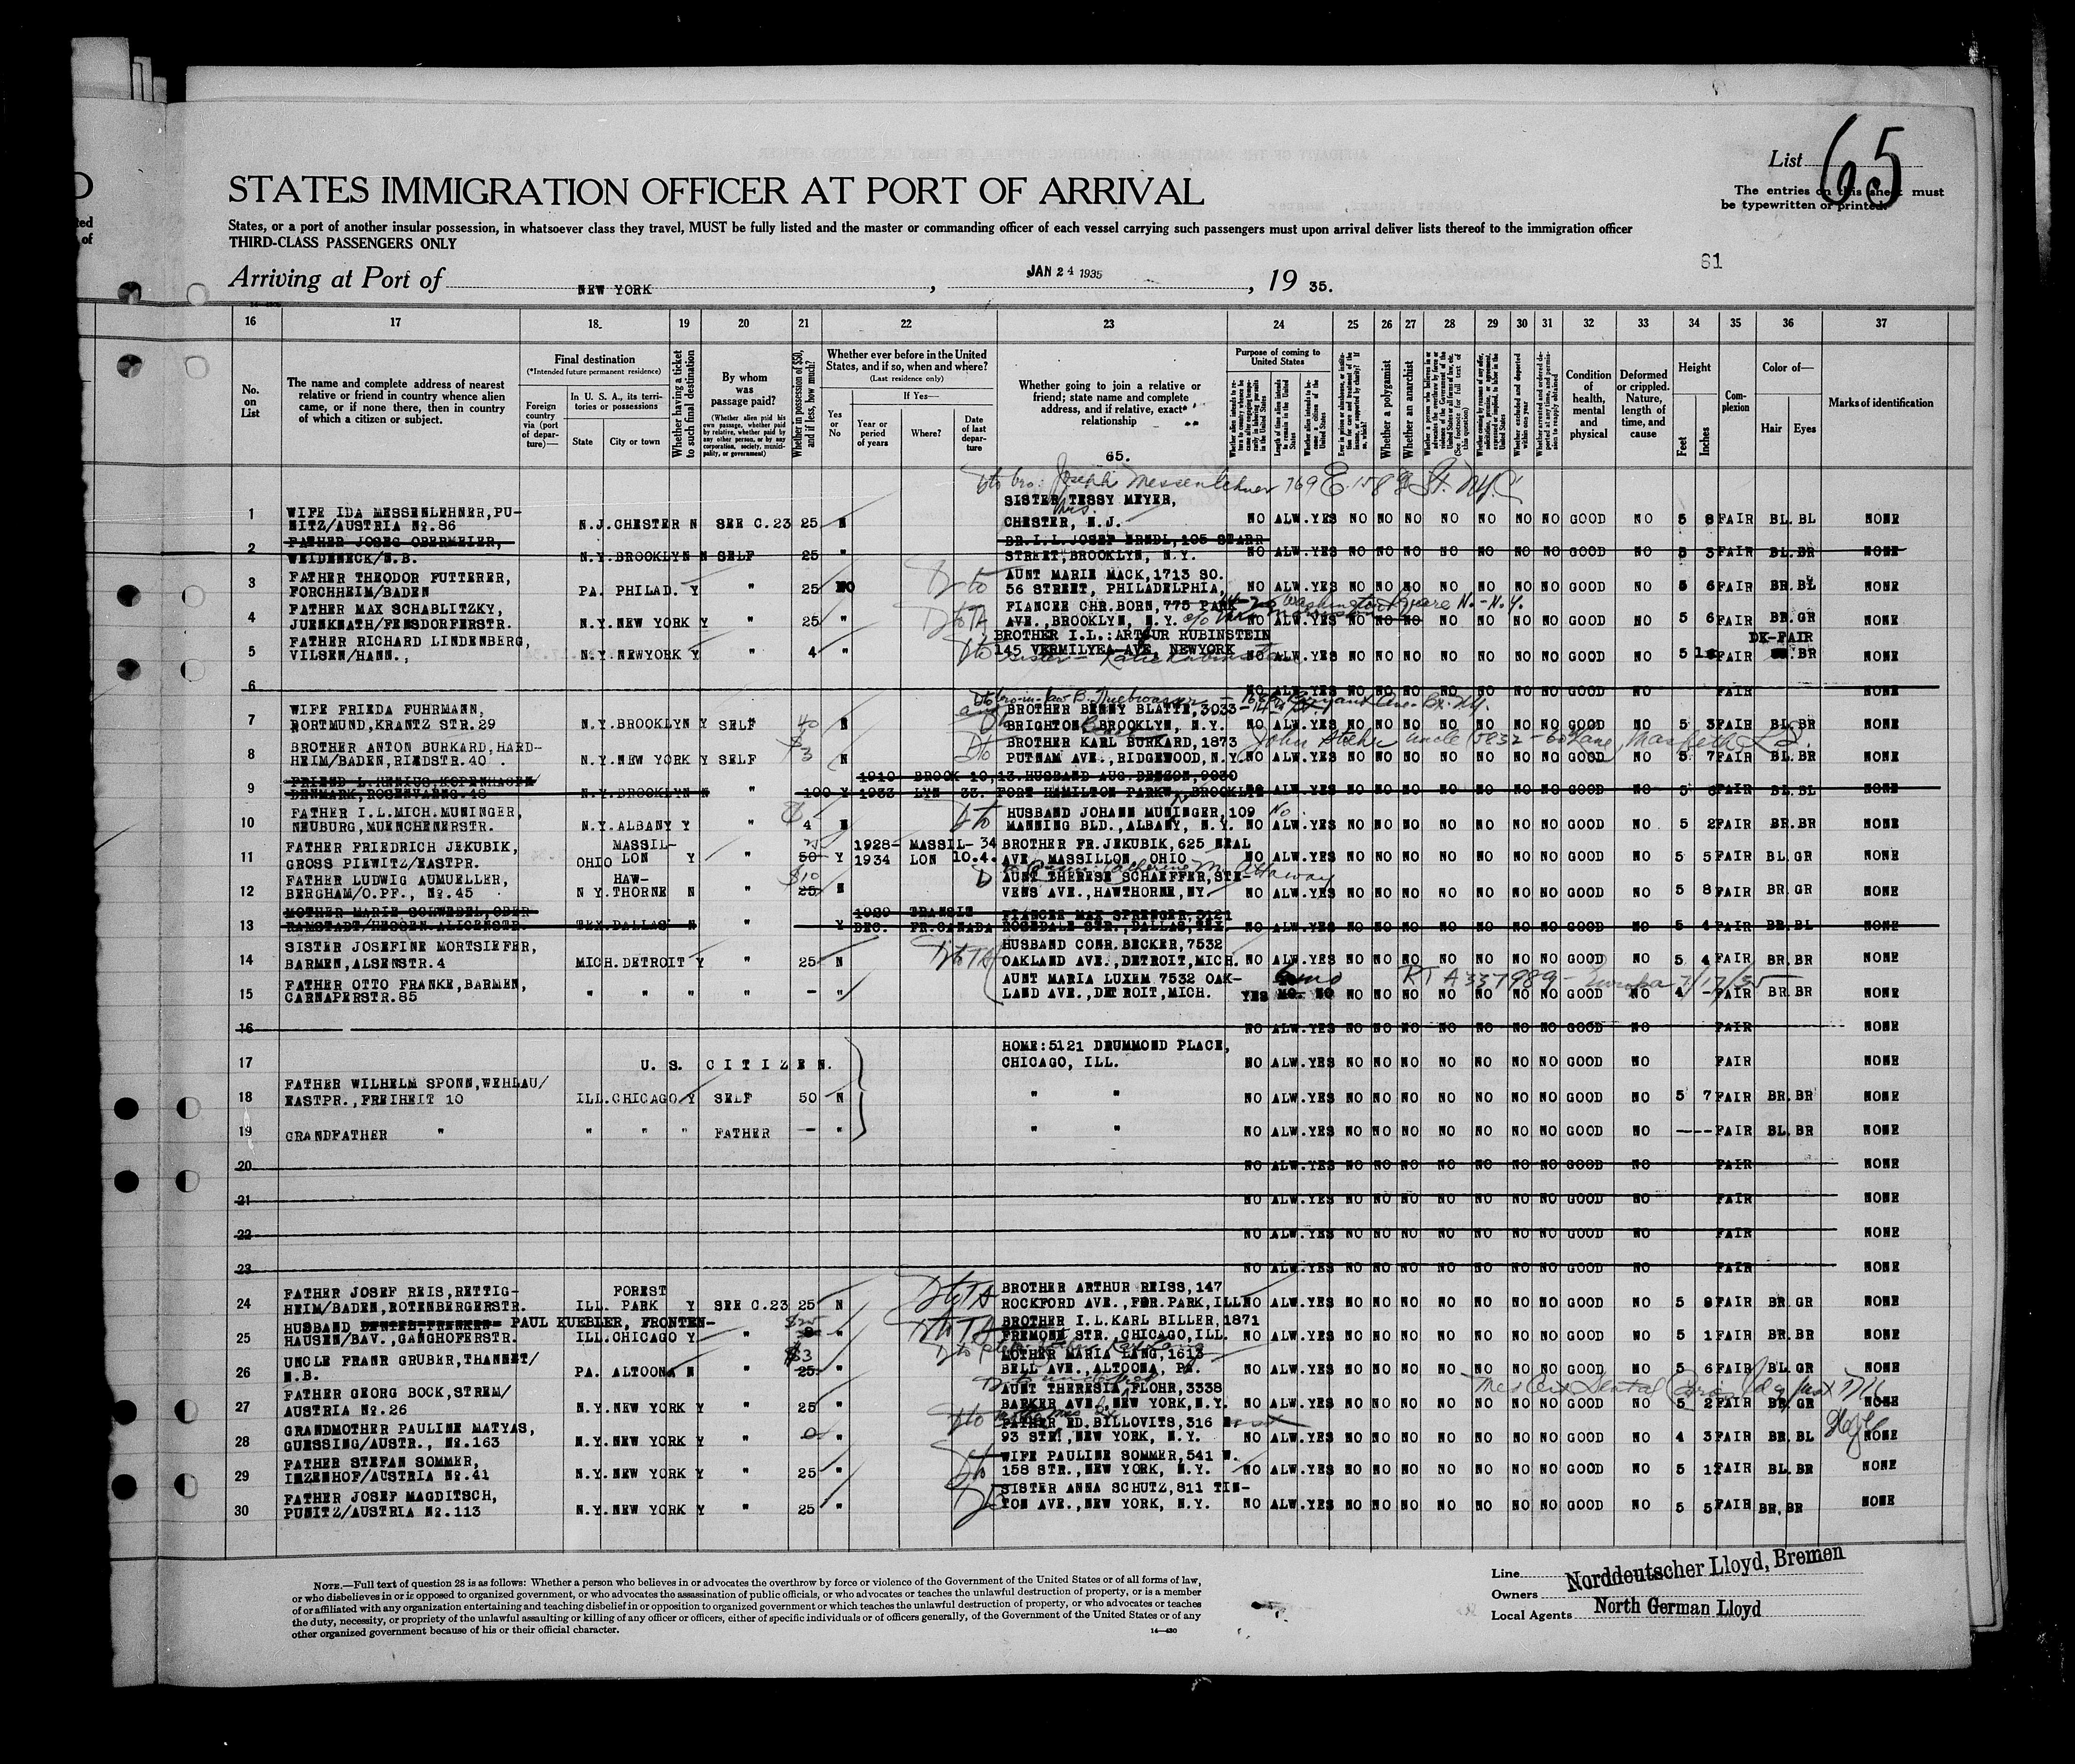 List 65
The entries on this sheet must
be typewritten or printed.
STATES IMMIGRATION OFFICER AT PORT OF ARRIVAL
States, or a port of another insular possession, in whatsoever class they travel, MUST be fully listed and the master or commanding officer of each vessel carrying such passengers must upon arrival deliver lists thereof to the immigration officer
THIRD-CLASS PASSENGERS ONLY
81
Arriving at Port of NEW YORK, JAN 24 1935, 19 35.
16 17 18 19 20 21 22 23 24 25 26 27 28 29 30 31 32 33 34 35 36 37
No. on List
The name and complete address of nearest relative or friend in country whence alien came, or if none there, then in country of which a citizen or subject.
Final destination
(*Intended future permanent residence)
Foreign country via (port of departure)—
In U. S. A., its territories or possessions
State
City or town
Whether having a ticket to such final destination
By whom was passage paid?
(Whether alien paid his own passage, whether paid by relative, whether paid by any other person, or by any corporation, society, municipality, or government)
Whether in possession of $50, and if less, how much?
Whether ever before in the United States, and if so, when and where?
(Last residence only)
Yes or No
If Yes—
Year or period of years
Where?
Date of last departure
Whether going to join a relative or friend; state name and complete address, and if relative, exact relationship
65.
Purpose of coming to United States
Whether a polygamist
Whether an anarchist
Condition of health, mental and physical
Deformed or crippled. Nature, length of time, and cause
Height
Feet
Inches
Complexion
Color of—
Hair
Eyes
Marks of identification
Dto bro: Joseph Messenlehner 769 E. 158 St. NYC
SISTER TESSY MEYER,
1 WIFE IDA MESSENLEHNER, PU-
NITZ/AUSTRIA №.86 N.J. CHESTER N SEE C.23 25 N CHESTER, N.J. NO ALW. YES NO NO NO NO NO NO NO GOOD NO 5 8 FAIR BL. BL NONE
2 FATHER JOSEG OBERMEIER, DR.I.L.JOSEF ERNDL, 105 STARR
WEIDENECK/N.B. N.Y. BROOKLYN N SELF 25 " STREET, BROOKLYN, N.Y. NO ALW. YES NO NO NO NO NO NO NO GOOD NO 5 3 FAIR BL. BR NONE
3 FATHER THEODOR FUTTERER, Dto AUNT MARIE MACK, 1713 SO.
FORCHHEIM/BADEN PA. PHILAD. Y " 25 NO 56 STREET, PHILADELPHIA, NO ALW. YES NO NO NO NO NO NO NO GOOD NO 5 6 FAIR BR. BL NONE
4 FATHER MAX SCHABLITZKY, FIANCEE CHR. BORN, 775 PARK Washington Square N. - N.Y.
JUENKNATH/FENSDORFERSTR. N.Y. NEW YORK Y " 25 " AVE., BROOKLYN, N.Y. NO ALW. YES NO NO NO NO NO NO NO GOOD NO 5 6 FAIR BR. GR NONE
5 FATHER RICHARD LINDENBERG, BROTHER I.L.: ARTHUR RUBINSTEIN DK-FAIR
VILSEN/HANN., N.Y. NEWYORK Y " 4 " Dto 145 VERMILYEA AVE, NEWYORK NO ALW. YES NO NO NO NO NO NO NO GOOD NO 5 FAIR BR NONE
6 NO ALW. YES NO NO NO NO NO NO NO GOOD NO FAIR NONE
7 WIFE FRIEDA FUHRMANN, BROTHER BENNY BLATTE, 3033
DORTMUND, KRANTZ STR.29 N.Y. BROOKLYN Y SELF 40 N BRIGHTON BROOKLYN, N.Y. NO ALW. YES NO NO NO NO NO NO NO GOOD NO 5 3 FAIR BL. BR NONE
8 BROTHER ANTON BURKARD, HARD- Dto BROTHER KARL BURKARD, 1873 John uncle Maspeth
HEIM/BADEN, RIEDSTR.40 N.Y. NEW YORK Y SELF $3 N PUTNAM AVE., RIDGEWOOD, N.Y. NO ALW. YES NO NO NO NO NO NO NO GOOD NO 5 7 FAIR BL. BR NONE
9 FRIEND L.HENIUS, KOPENHAGEN 1910 BROOK 10, 13. HUSBAND AUG. BENZON, 9030
DENMARK, ROSENVAENG.48 N.Y. BROOKLYN N " 100 Y 1933 LYN 33. FORT HAMILTON PARKW., BROOKLYN NO ALW. YES NO NO NO NO NO NO NO GOOD NO 5 6 FAIR BL. BL NONE
10 FATHER I.L.MICH. MUNINGER, Dto HUSBAND JOHANN MUNINGER, 109 No.
NEUBURG, MUENCHENERSTR. N.Y. ALBANY Y " 4 N MANNING BLD., ALBANY, N.Y. NO ALW. YES NO NO NO NO NO NO NO GOOD NO 5 2 FAIR BR. BR NONE
11 FATHER FRIEDRICH JEKUBIK, MASSIL- 1928- MASSIL- 34 BROTHER FR. JEKUBIK, 625 NEAL
GROSS PIEWITZ/EASTPR. OHIO LON Y " 50 Y 1934 LON 10.4. AVE, MASSILLON, OHIO NO ALW. YES NO NO NO NO NO NO NO GOOD NO 5 5 FAIR BL. GR NONE
12 FATHER LUDWIG AUMUELLER, HAW- $10 AUNT THERESE SCHAEFFER, STE-
BERGHAM/O.PF., №.45 N Y. THORNE N " 25 N VENS AVE., HAWTHORNE, NY. NO ALW. YES NO NO NO NO NO NO NO GOOD NO 5 8 FAIR BR. GR NONE
13 MOTHER MARIE SCHWEBEL, OBER- 1929 TRANSIT FIANCEE MAX SPRENGER, 5121
RAMSTADT/HESSEN. ALICENSTR. TEX. DALLAS N " Y DEC. FR. CANADA ROSEDALE STR., DALLAS, TEX NO ALW. YES NO NO NO NO NO NO NO GOOD NO 5 4 FAIR BR. BL NONE
14 SISTER JOSEFINE MORTSIEFER, HUSBAND CONR. BECKER, 7532
BARMEN, ALSENSTR.4 MICH. DETROIT Y " 25 N OAKLAND AVE., DETROIT, MICH. NO ALW. YES NO NO NO NO NO NO NO GOOD NO 5 4 FAIR BR. BR NONE
15 FATHER OTTO FRANKE, BARMEN, AUNT MARIA LUXEM 7532 OAK- 6 mo RT A 337989 - Europa 7/17/35
CARNAPERSTR.85 " " " " - " LAND AVE., DETROIT, MICH. YES NO NO NO NO NO NO NO NO NO GOOD NO 4 - FAIR BR. BR NONE
16 NO ALW. YES NO NO NO NO NO NO NO GOOD NO FAIR NONE
HOME: 5121 DRUMMOND PLACE,
17 U. S. CITIZEN. CHICAGO, ILL. NO ALW. YES NO NO NO NO NO NO NO GOOD NO FAIR NONE
18 FATHER WILHELM SPONN, WEHLAU/
EASTPR., FREIHEIT 10 ILL. CHICAGO Y SELF 50 N " " NO ALW. YES NO NO NO NO NO NO NO GOOD NO 5 7 FAIR BR. BR NONE
19 GRANDFATHER " " " " FATHER - " " " NO ALW. YES NO NO NO NO NO NO NO GOOD NO --- FAIR BL. BR NONE
20 NO ALW. YES NO NO NO NO NO NO NO GOOD NO FAIR NONE
21 NO ALW. YES NO NO NO NO NO NO NO GOOD NO FAIR NONE
22 NO ALW. YES NO NO NO NO NO NO NO GOOD NO FAIR NONE
23 NO ALW. YES NO NO NO NO NO NO NO GOOD NO FAIR NONE
24 FATHER JOSEF REIS, RETTIG- FOREST BROTHER ARTHUR REISS, 147
HEIM/BADEN, ROTENBERGERSTR. ILL. PARK Y SEE C.23 25 N ROCKFORD AVE., FOR. PARK, ILL NO ALW. YES NO NO NO NO NO NO NO GOOD NO 5 8 FAIR BR. GR NONE
25 HUSBAND PAUL KUEBLER, FRONTEN- BROTHER I.L. KARL BILLER, 1871
HAUSEN/BAV., GANGHOFERSTR. ILL. CHICAGO Y " " FREMONT STR., CHICAGO, ILL. NO ALW. YES NO NO NO NO NO NO NO GOOD NO 5 1 FAIR BR. BR NONE
26 UNCLE FRANR GRUBER, THANNET/ $3 MOTHER MARIA LANG, 1613
N.B. PA. ALTOONA N " 25 " BELL AVE., ALTOONA, PA. NO ALW. YES NO NO NO NO NO NO NO GOOD NO 5 6 FAIR BL. GR NONE
27 FATHER GEORG BOCK, STREM/ AUNT THERESIA FLOHR, 3338 Med Cert Dental
AUSTRIA №.26 N.Y. NEW YORK Y " 25 " BARKER AVE, NEW YORK, N.Y. NO ALW. YES NO NO NO NO NO NO NO GOOD NO 5 2 FAIR BR GR NONE
28 GRANDMOTHER PAULINE MATYAS, FATHER ED. BILLOVITS, 316
GUESSING/AUSTR., №.163 N.Y. NEW YORK Y " 0 " 93 STR., NEW YORK, N.Y. NO ALW. YES NO NO NO NO NO NO NO GOOD NO 4 3 FAIR BR. BL NONE
29 FATHER STEFAN SOMMER, WIFE PAULINE SOMMER, 541 W.
INZENHOF/AUSTRIA №.41 N.Y. NEW YORK Y " 25 " Dto 158 STR., NEW YORK, N.Y. NO ALW. YES NO NO NO NO NO NO NO GOOD NO 5 FAIR BL. BR NONE
30 FATHER JOSEF MAGDITSCH, SISTER ANNA SCHUTZ, 811 TIN-
PUNITZ/AUSTRIA №.113 N.Y. NEW YORK Y " 25 " TON AVE., NEW YORK, N.Y. NO ALW. YES NO NO NO NO NO NO NO GOOD NO 5 5 FAIR BR. BR NONE
NOTE.—Full text of question 28 is as follows: Whether a person who believes in or advocates the overthrow by force or violence of the Government of the United States or of all forms of law,
or who disbelieves in or is opposed to organized government, or who advocates the assassination of public officials, or who advocates or teaches the unlawful destruction of property, or is a member
of or affiliated with any organization entertaining and teaching disbelief in or opposition to organized government or which teaches the unlawful destruction of property, or who advocates or teaches
the duty, necessity, or propriety of the unlawful assaulting or killing of any officer or officers, either of specific individuals or of officers generally, of the Government of the United States or of any
other organized government because of his or their official character.
14—430
Line Norddeutscher Lloyd, Bremen
Owners
Local Agents North German Lloyd